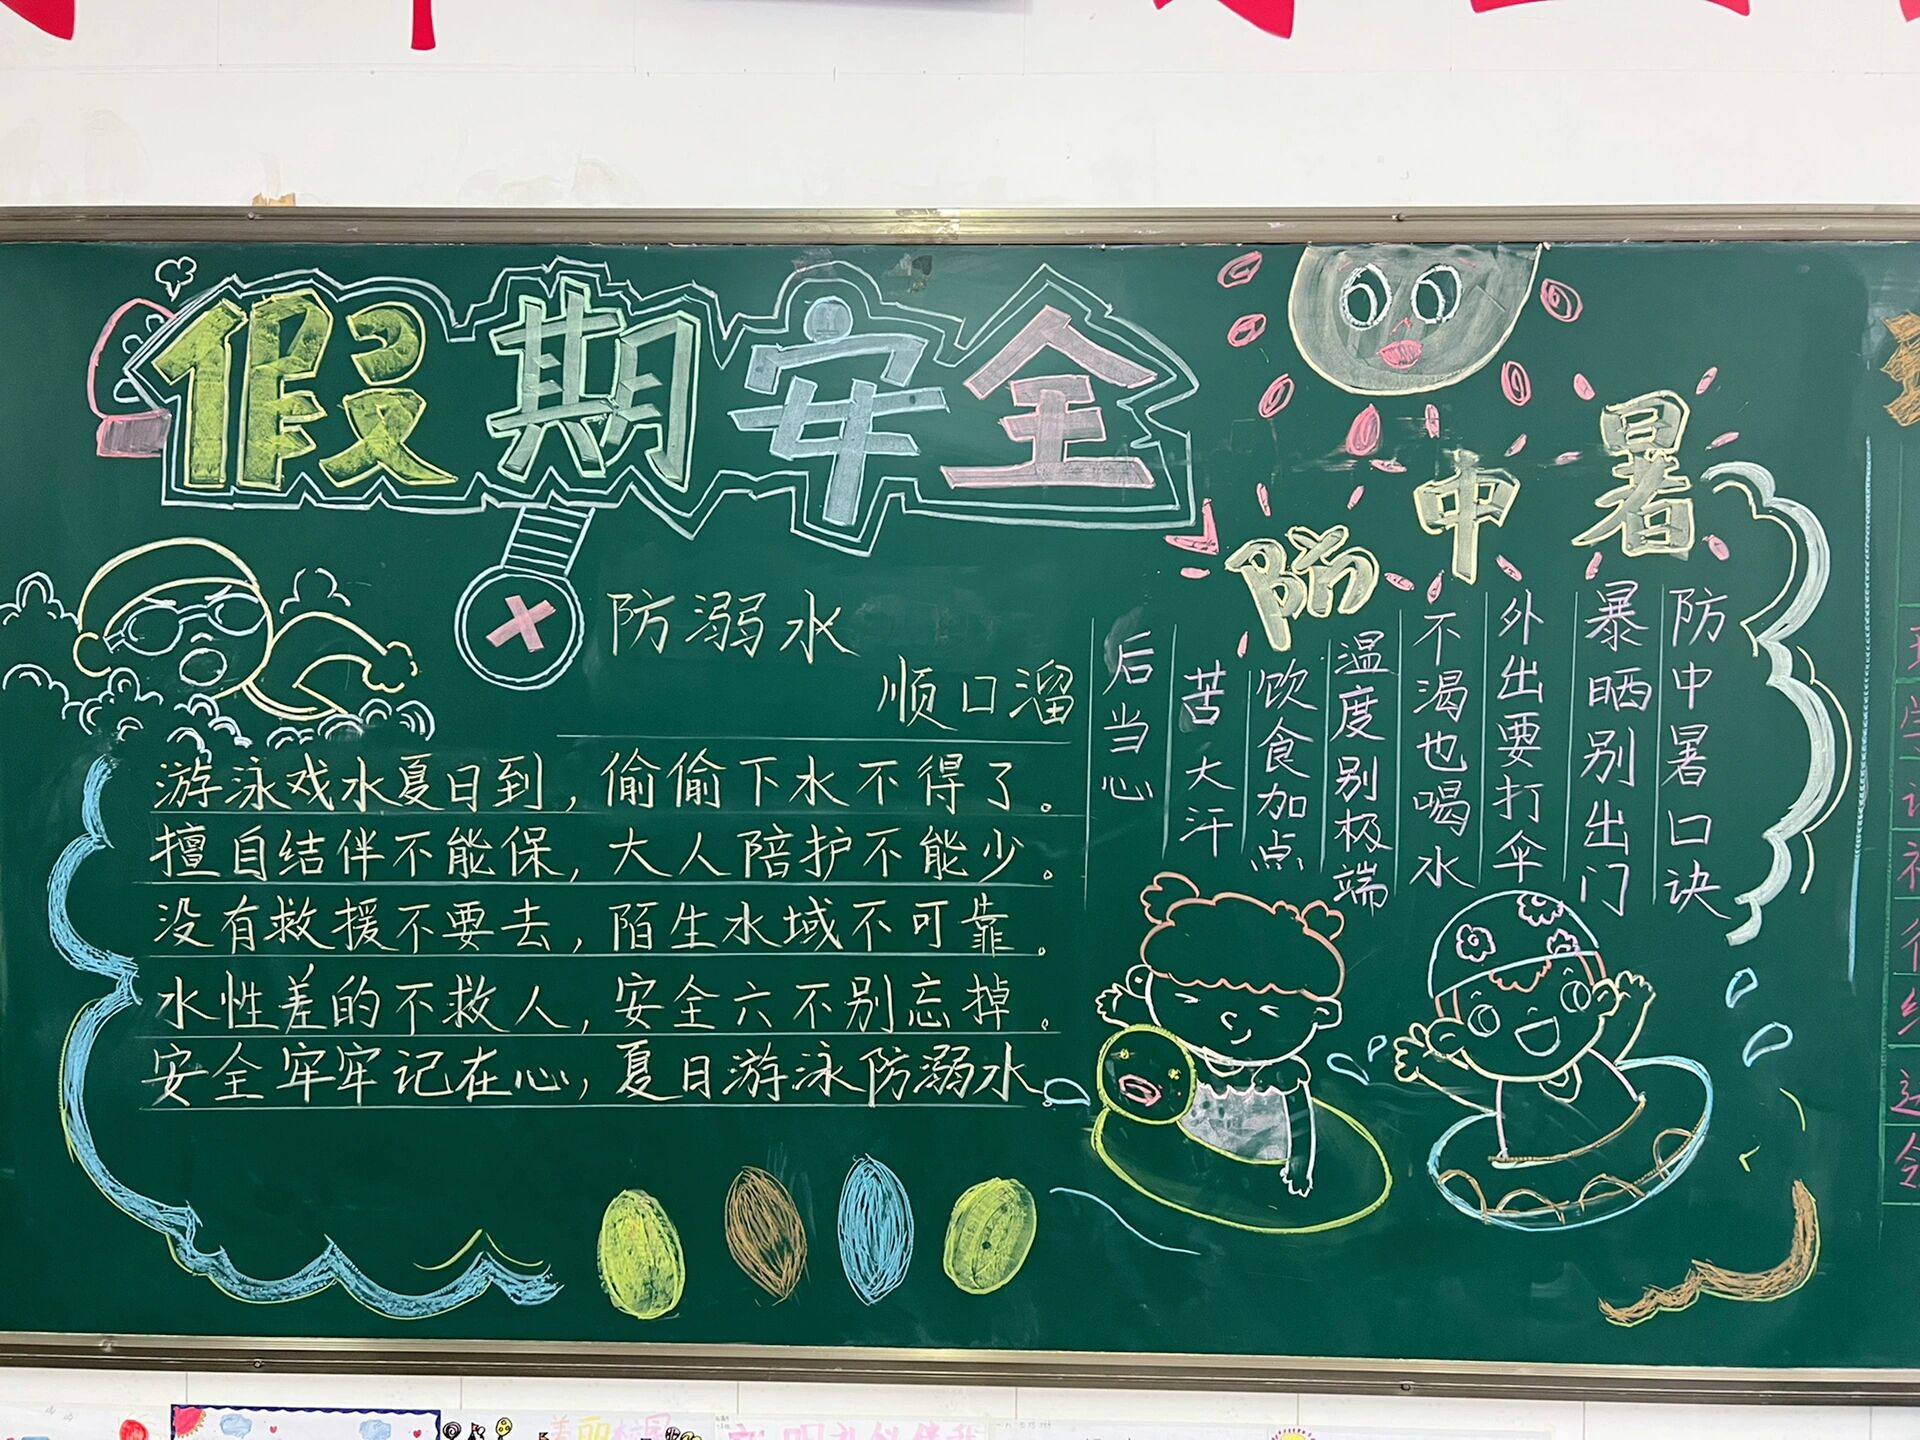 假期安全
防溺水
顺口溜
游泳戏水夏日到，偷偷下水不得了。
擅自结伴不能保，大人陪护不能少。
没有救援不要去，陌生水域不可靠。
水性差的不救人，安全六不别忘掉。
安全牢牢记在心，夏日游泳防溺水
防中暑
防中暑口诀
暴晒别出门
外出要打伞
不渴也喝水
温度别极端
饮食加点
苦大汗
后当心